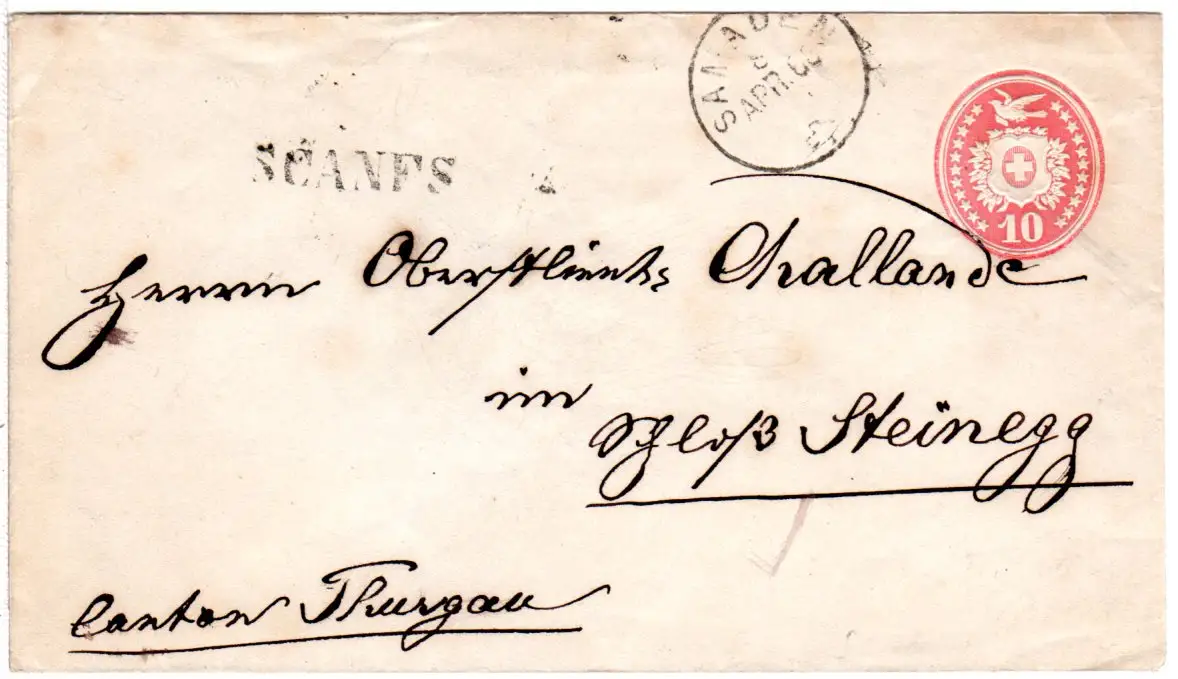 SAMADEN
APR.
SCANFS
10
Herrn Oberstlieut. Challande
im
Schloß Steinegg
Canton Thurgau